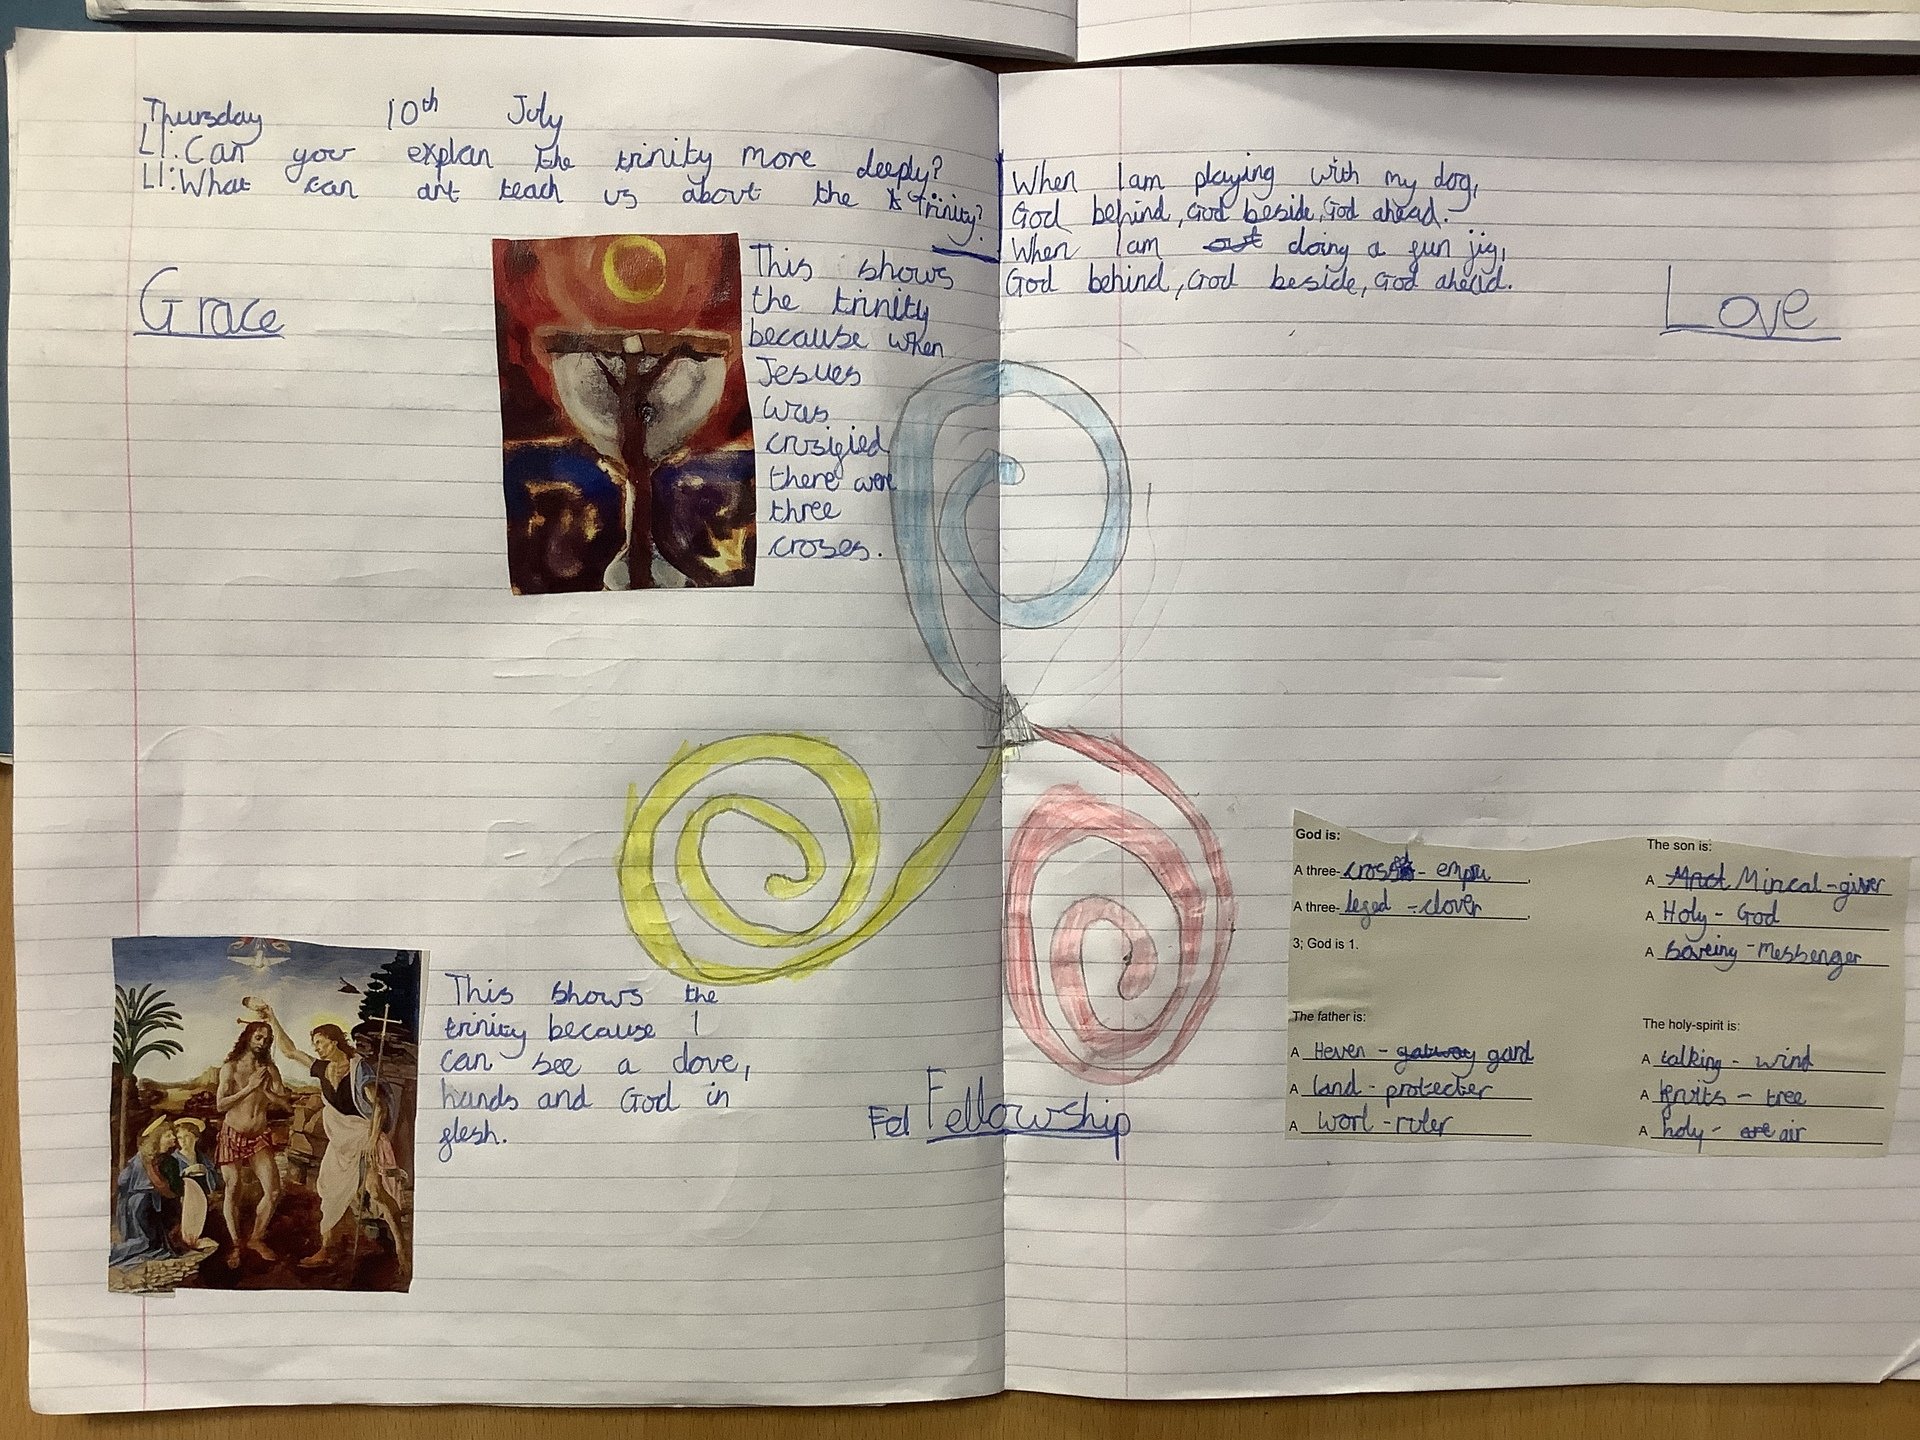 Thursday 10th July
LI: Can your explan the trinity more deeply?
LI: What can art teach us about the trinity?
Grace
This shows
the trinity
because when
Jesues
was
crusified
there were
three
croses.
This shows the
trinity because I
can see a dove,
hands and God in
flesh.
Fel Fellowship
When I am playing with my dog,
God behind, God beside, God ahead.
When I am out doing a fun jig,
God behind, God beside, God ahead.
Love
God is:
A three-
A three-leged - clover
3; God is 1.
The son is:
A Mircal-giver
A Holy - God
A saveing - Messenger
The father is:
A Heven - gatway gard
A land - protecter
A worl - ruler
The holy-spirit is:
A talking - wind
A fruits - tree
A holy - air